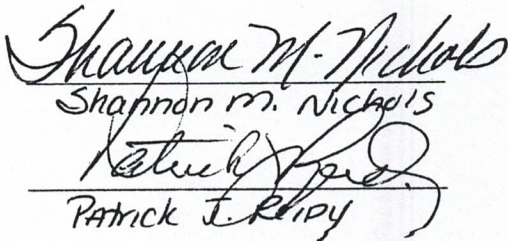 Shannon M. Nichols
Shannon M. Nichols
Patrick J. Reidy
PATRICK J. REIDY